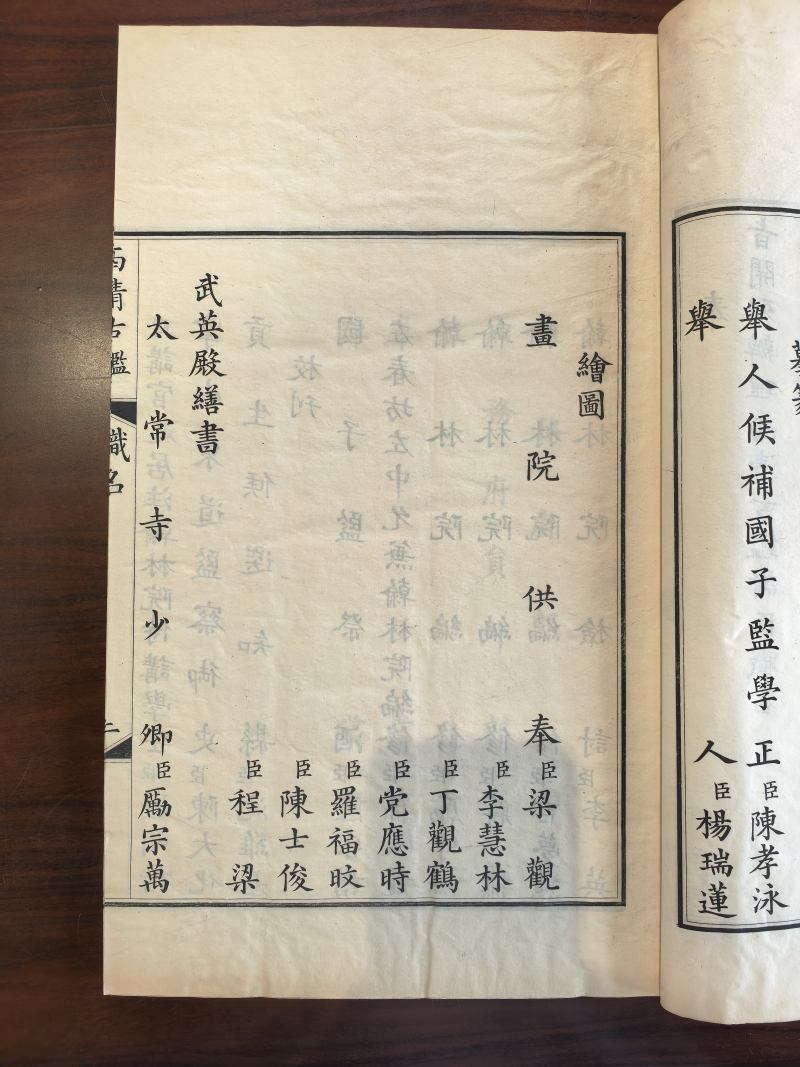 摹篆
舉人候補國子監學正臣陳孝泳
舉人臣楊瑞蓮
繪圖
畫院供奉臣梁觀
臣李慧林
臣丁觀鶴
臣党應時
臣羅福旼
臣陳士俊
臣程梁
武英殿繕書
太常寺少卿臣勵宗萬
西清古鑑 職名